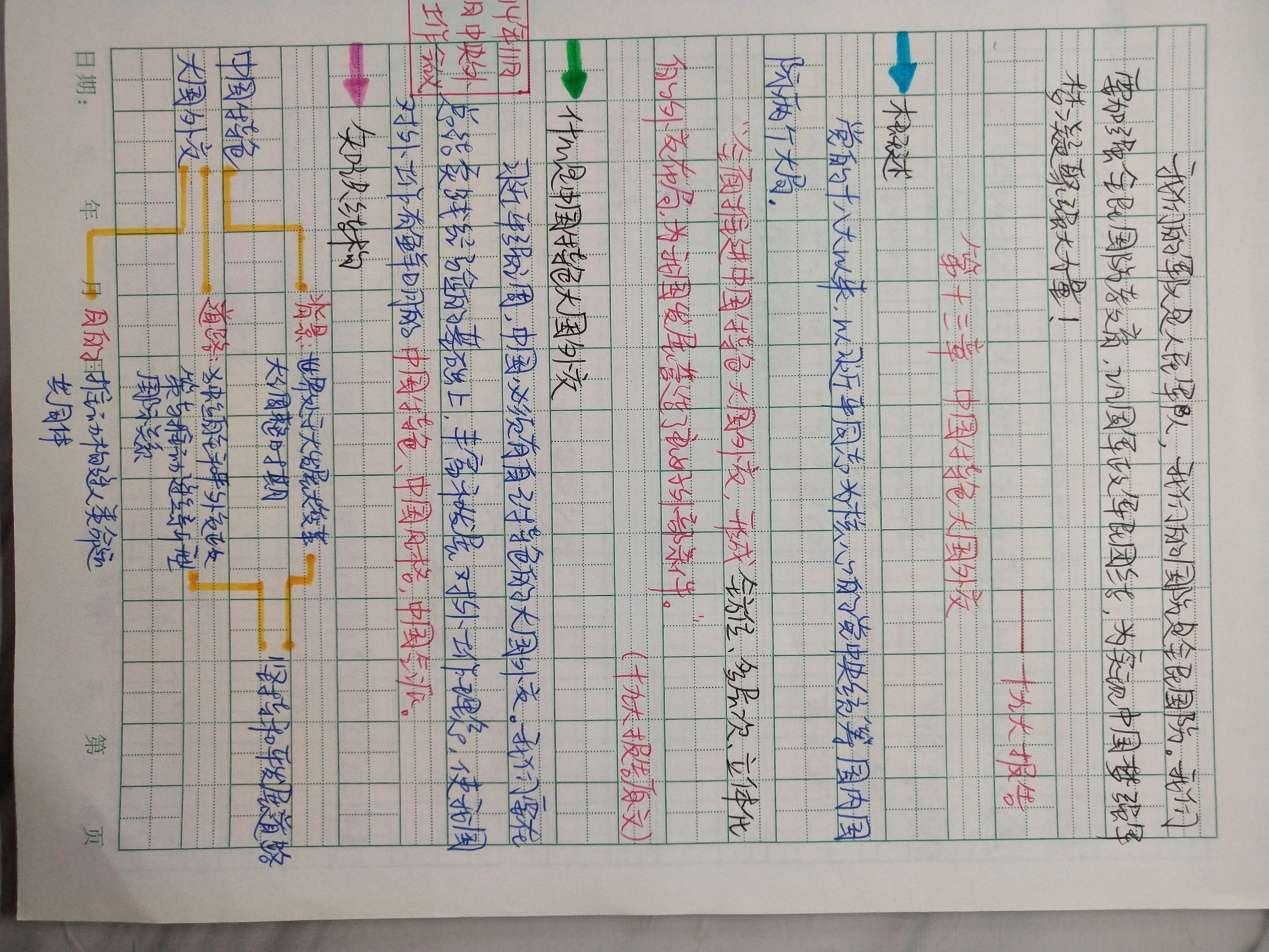 我们的军队是人民军队，我们的国防是全民国防。我们
要加强全民国防教育，巩固军政军民团结，为实现中国梦强军
梦凝聚强大力量！
——十九大报告
第十三章 中国特色大国外交
概述
党的十八大以来，以习近平同志为核心的党中央统筹国内国
际两个大局，
全面推进中国特色大国外交，形成全方位、多层次、立体化
的外交布局，为我国发展营造了良好外部条件。"
(十九大报告原文)
什么是中国特色大国外交
习近平强调，中国必须有自己特色的大国外交。我们要在
总结实践经验的基础上，丰富和发展对外工作理念，使我国
对外工作有鲜明的中国特色、中国风格、中国气派。
14年11月
中央外
工作会议
知识结构
中国特色
大国外交
背景：世界处于大发展大变革
大调整时期
道路：
国际关系
坚持和平发展道路
目的：推动构建人类命运
共同体
日期： 年 月 日 第 页